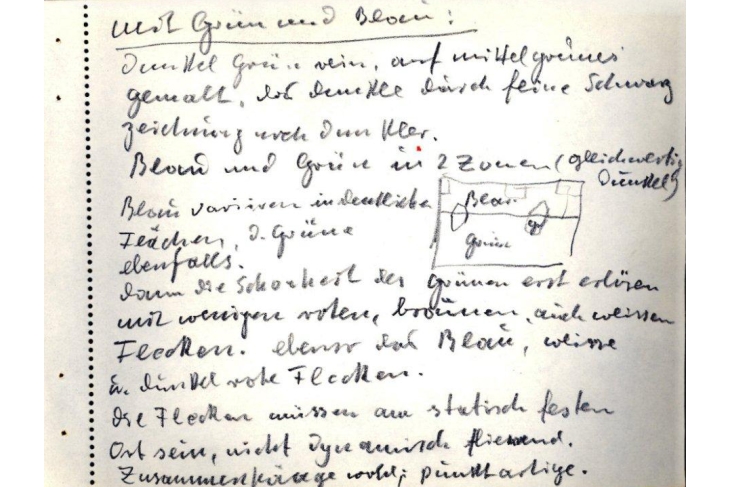 mit Grün und Blau:
Dunkel Grün rein, auf mittelgrünes
gemalt, das dunkle durch feine Schwarz
zeichnung noch dunkler.
Blau und Grün in 2 Zonen (gleichwertig
dunkel)
Blau variieren in deutlichen
Flächen, d. Grüne
ebenfalls.
Blau
Grün
dann die Schönheit des grünen erst erlösen
mit wenigen roten, braunen, auch weissen
Flecken. ebenso das Blau, weisse
u. dunkel rote Flecken.
die Flecken müssen am statisch festen
Ort sein, nicht dynamisch fliessend.
Zusammenhänge wohl; punktartige.